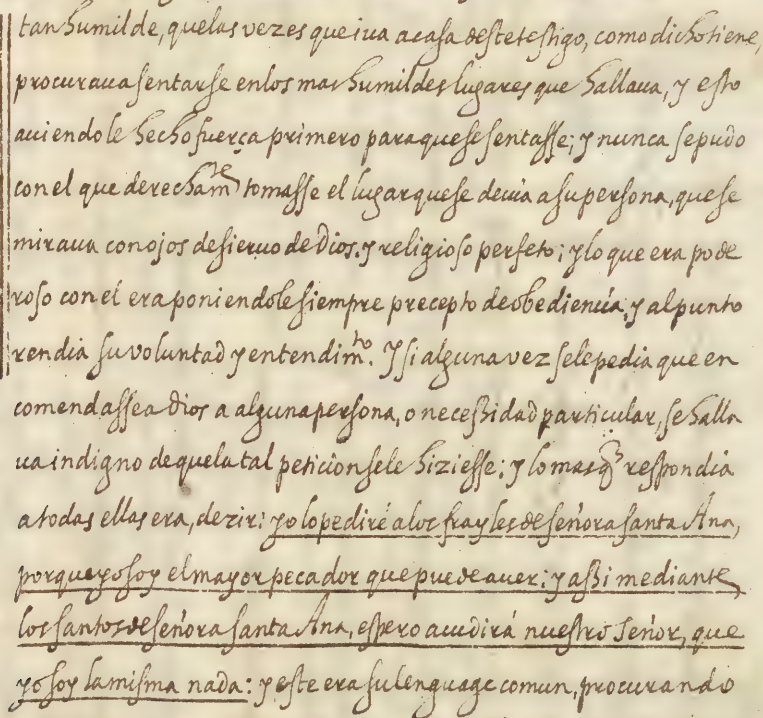 tan humilde, que las vezes que iua a casa deste testigo, como dicho tiene,
procuraua sentarse en los mas humildes lugares que hallaua, y esto
auiendole hecho fuerça primero para que se sentasse; y nunca se pudo
con el que derecham.te tomasse el lugar que se deuia a su persona, que se
miraua con ojos de sieruo de Dios, y religioso perfeto; y lo que era pode
roso con el era poniendole siempre precepto de obediencia, y al punto
rendia su voluntad y entendim.to. Y si alguna vez se le pedia que en
comendasse a Dios a alguna persona, o necessidad particular, se halla
ua indigno de que la tal peticion se le hiziesse; y lo mas q̃ respondia
a todas ellas era, dezir: yo lo pediré a los frayles de señora santa Ana,
porque yo soy el mayor pecador que puede auer: y assi mediante
los santos de señora santa Ana, espero acudirá nuestro Señor, que
yo soy la misma nada: y este era su lenguage comun, procurando